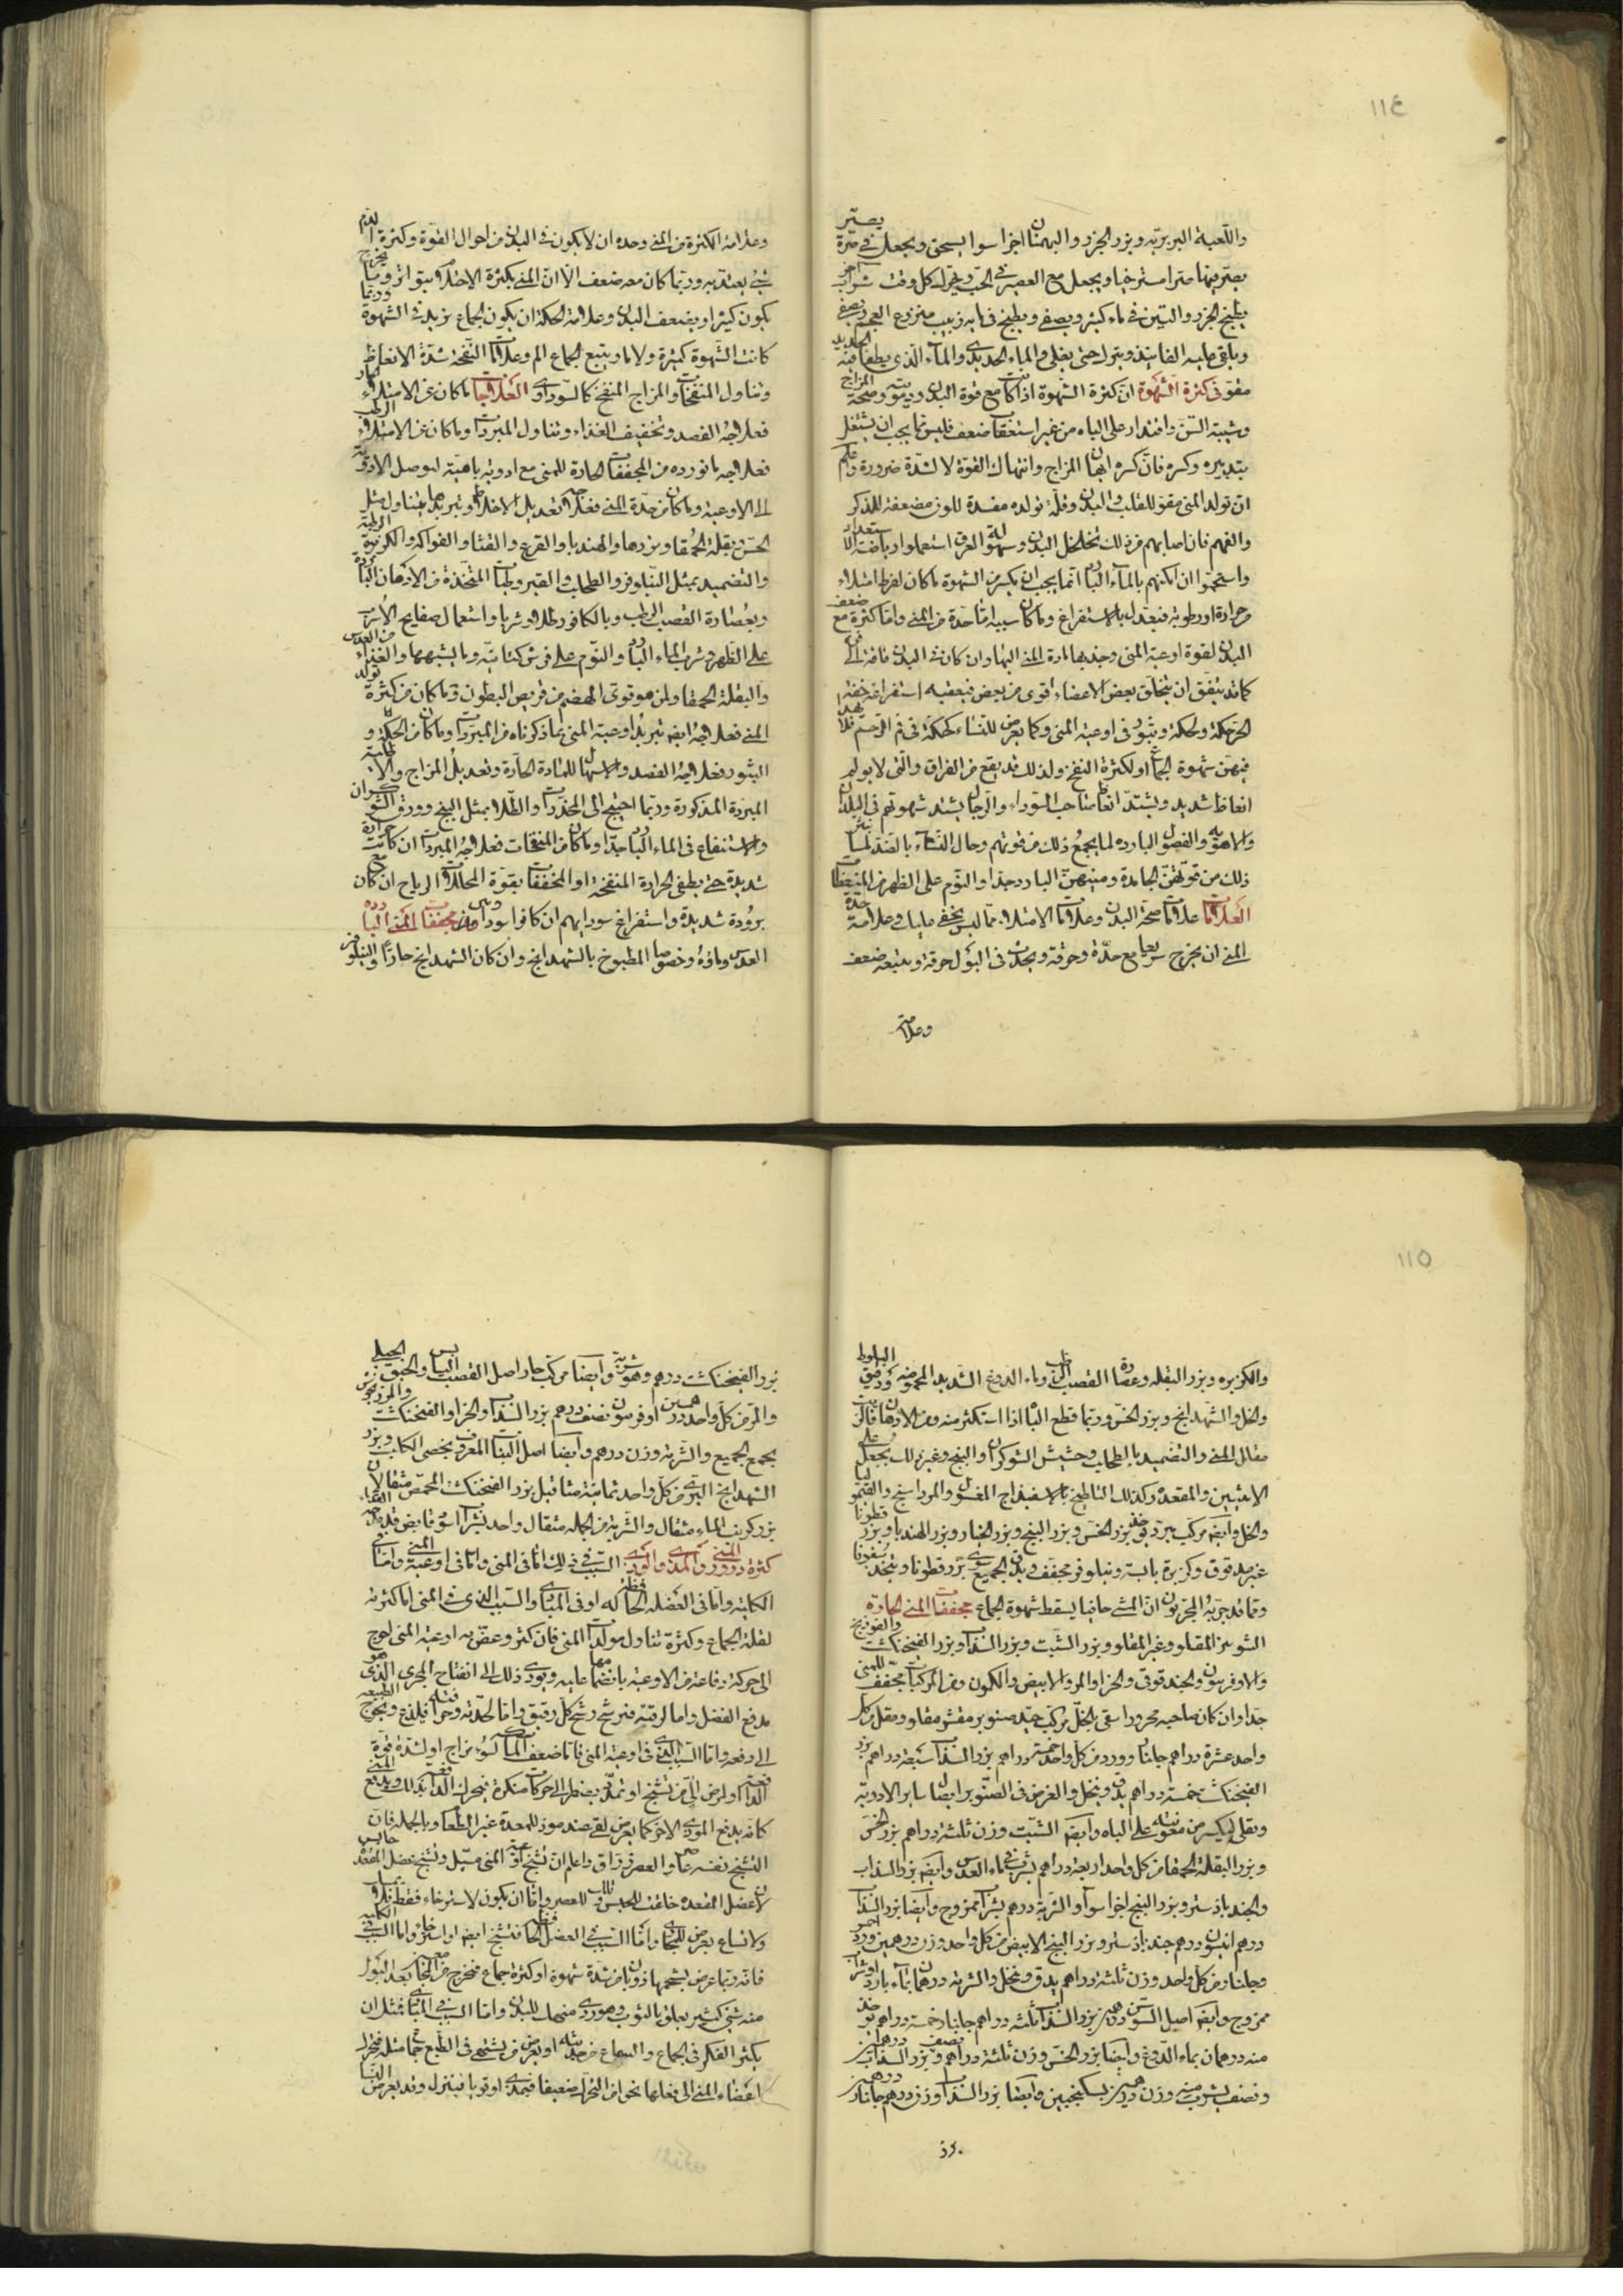 ١١٤
واللعبة البربرية وبزر الجزر والبهمنان اجزا سوا يسحق ويجعل في صرة
يصير فيها صرا مسترخيا ويجعل مع العصير في الحب ويحرك كل وقت شراب اخر
يطبخ الجزر والتين في ماء كثير ويصفى ويطبخ في مايه زبيب منزوع العجم ويصفى
ويلقى عليه الفانيذ ويترك حتى يغلى والماء الحديدى والماء الذى يطفا فيه الحديد
مقو فى كثرة الشهوة ان كثرة الشهوة اذا كانت مع قوة البدن ودمويته وصحة المزاج
وشبيبة السن واقتدار على الباه من غير استعقاب ضعف فليس مما يجب ان يشتغل
بتدبيره وكسره فان كسره ايهان المزاج وانتهاك القوة لا لشدة ضرورة واعلم
ان تولد المنى مقو للقلب والبدن وقلة تولده مفسدة للون مضعفة للذكر
والفهم فان اصابهم من ذلك تخلخل البدن وسهولة العرق استعملوا رياضة الاستعداد
واستحموا ان امكنهم بالماء البارد انما يجب ان يكسر من الشهوة ما كان لفرط امتلاء
وحرارة او رطوبة فيعدل بالاستفراغ وما كان سببه اما حدة من المنى واما كثرة مع ضعف
البدن لقوة اوعية المنى وجذبها مادة المنى اليها وان كان فى البدن فاقة الى
كما قد يتفق ان يتخلق بعض الاعضاء اقوى من بعض فيعقبه استفراغه خفة
الحركة ولحكة وبثور فى اوعية المنى وكما يعرض للنساء كحكة فى فم الرحم فلا يهدا
فيهن شهوة الجماع او لكثرة النفخ ولذلك قد يقع من القراقر والتى لا يولم
انعاظ شديد ويشتد انعاظ صاحب السوداء والرجال يشتد شهوتهم فى البلدان
والاهوية والفصول البارده لما يجمع ذلك من قوتهم وحال النساء بالضد لما ينبه
ذلك من قوتهن الجامدة ومنيهن البارد جدا والنوم على الظهر من المنعظات
العلامات علامات صحة البدن وعلامات الامتلاء مما ليس يخفى عليك وعلامة حدة
المنى ان يخرج سريعا مع حدة وحرقة ويحدث فى البول حرقة ويتبعه ضعف
وعلامة
وعلامة الكثرة من المنى وحده ان لا يكون فى البدن من احوال القوة وكثرة الدم
شئ يعتد به وربما كان معه ضعف الا ان المنى بكثرة الاحتلام متواتر وما يخرج
يكون كثيرا ويضعف البدن وعلامة الحكة ان يكون الجماع يزيد فى الشهوة وربما
كانت الشهوة كثيرة ولا ماء ويتبع الجماع الم وعلامات النفخة شدة الانعاظ
وتناول المنفخات والمزاج المنفخ كالسوداوى العلاجات ما كان عن الامتلاء الحار
فعلاجه الفصد وتخفيف الغذاء وتناول المبردات وما كان عن الامتلاء الرطب
فعلاجه ما نورده من المجففات الحارة للمنى مع ادوية باهية ليوصل الادوية
الى الاوعية وما كان من حدة المنى فعلاجه تعديل الاخلاط وتبريدها بتناول مثل
الخس وبقلة الحمقا وبزرها والهندبا والقرع والقثا والفواكه والكزبرة الرطبة
والتضميد بمثل النيلوفر والطحلب والقيروطيات المتخذة من الادهان الباردة
وبعصارة القصب الرطب وبالكافور طلاء وشربا واستعمال صفايح الاسرب
على الظهر وشرب الماء البارد والنوم على فرش كتانية وما يشبهها والغذاء من العدس
والبقلة الحمقا ولمن هو قوى الهضم من قريص البطون وما كان من كثرة تولد
المنى فعلاجه ايضا تبريد اوعية المنى بما ذكرناه من المبردات وما كان من الحكة و
البثور فعلاجه الفصد والاسهال للمادة الحارة وتعديل المزاج والاطلية
المبردة المذكورة وربما احتيج الى المخدرات والطلاء بمثل البنج وورق الشوكران
والاستنقاع فى الماء البارد جدا وما كان من المنفخات فعلاجه المبردات ان كانت حرارة
شديدة حتى يطفى الحرارة المنفخة او المخففات بقوة المحللات الرياح ان كان مع
برودة شديدة واستفراغ سودايهم ان كانوا سوداويين من مجففات المنى الباردة
العدس وماؤه وخصوصا المطبوخ بالشهدانج وان كان الشهدانج حارا والنيلوفر
١١٥
والكزبره وبزر البقله وعصارة القصب الرطب وماء الدوغ الشديد المحموضة ودقيق البلوط
والخل والشهدانج وبزر الخس وربما قطع الباه اذا استكثر منه ومن الادهان
مقلل المنى والتضميد بالطحلب وحشيش الشوكران والبنج وغير ذلك يجعل على
الانثيين والمقعده وكذلك التلطيخ بالاسفيداج المغسول والمرداسنج والقيموليا
والخل وايضا مركب مبرد قوى خذ بزر الخس وبزر البنج وبزر الخيار وبزر الهندبا وبزر قطونا
غير مدقوق وكزبرة يابسة ونيلوفر مجفف ويدق الجميع سوى بزر قطونا ويتخذ سفوفا
ومما قد جربه المجربون ان المشى حافيا يسقط شهوة الجماع مجففات المنى الحارة
الشونيز المقلو وغير المقلو وبزر الشبت وبزر السذاب وبزر الفنجنكشت والفودنج
والاوفرسيون والجندقوقى والحزا والمرو الابيض والكمون ومن المركبات مجفف للمنى
جدا وان كان صاحبه محرورا سقى بالخل مركب جيد صنوبر مقشو مقلو ومقل من كل
واحد عشرة دراهم جلنار وورد من كل واحد خمسة دراهم بزر السذاب سبعة دراهم بزر
الفنجنكشت خمسة دراهم يدق وينخل والغرض فى الصنوبر ايصال ساير الادوية
وتقلى ليكسر من معونته على الباه وايضا الشبت وزن ثلثة دراهم بزر الخس
وبزر البقلة الحمقا من كل واحد اربعة دراهم يشرب فى ماء العدس وايضا بزر السذاب
والجندبادستر وبزر البنج اجزا سوآ والشربة درهم بشراب ممزوج وايضا بزر السذاب
درهم انيسون درهم جندبادستر وبزر البنج الابيض من كل واحد وزن درهمين ورد احمر
وجلنار من كل واحد وزن ثلثة دراهم يدق وينخل والشربة درهمان بماء بارد او شراب
ممزوج وايضا اصل السوسن درهمين بزر السذاب ثلثه دراهم جلنار خمسة دراهم يوخذ
منه درهمان بماء الدوغ وايضا بزر الخس وزن ثلثة دراهم وبزر السذاب درهمان
ونصف يشرب منه وزن درهمين بسكنجبين وايضا بزر السذاب وزن درهم جلنار درهمين
بزر
بزر الفنجنكشت درهم وهو شربة وايضا مركب حار اصل القصب اليابس والحبق الجبلى
والمر من كل واحد درهمين اوفرسيون نصف درهم بزر السذاب والحزا والفنجنكشت والمرزنجوش
يجمع الجميع والشربة وزن درهم وايضا اصل النبات المعروف بخصى الكلب وبزر
الشهدانج البرى من كل واحد ثمانية مثاقيل بزر الفنجنكشت المحمص مثقالان
بزر كرنب الماء مثقال والشربة من الجمله مثقال واحد بشراب اسود قابض قليلا
كثرة درور المنى والمذى والودى السبب فى ذلك اما فى المنى واما فى اوعية المنى واما فى
الكلية واما فى العضله الحافظة له او فى المبادى والسبب الذى فى المنى اما كثرته
لقلة الجماع وكثرة تناول مولدات المنى فان كثر وعضت به اوعية المنى لحوج
الى حركة دفاعة من الاوعية بانضمامها عليه ويودى ذلك الى انفتاح المجرى الذى هو
مدفع الفضل واما لرقته فيرشح رشح كل رقيق واما لحدته وحرافته فيلذع ويحوج الطبيعه
الى دفعه واما السبب الذى فى اوعية المنى فاما ضعف الماسكة لسوء مزاج او لشدة قوة
الدافعة او لمرض الى من تشنج او تمدد يضطر الى حركات منكرة فيحرك الدافعة لذلك ويدفع المنى
كانه يدفع الموذى الاخر كما يعرض لقى عند موذ للمعدة غير الطعام وبالجملة فان
التشنج نفسه عصار والعصر زراق واعلم ان تشنج اوعية المنى مسيل وتشنج عضل المقعد حابس
لان عضل المقعده خلقت للحبس وتلك للعصر واما ان يكون لاسترخاء فقط
ولاتساع يعرض للمجارى واما السبب فى العضل الحافظة فتشنج ايضا او استرخاء واما السبب فى الكلية
فانه ربما عرض لشحمها ذوبان من شدة شهوة او كثرة جماع فيخرج من المجارى بعد البول
منه شئ كثير يعلق بالثوب وهو ردى منهك للبدن واما السبب فى المبادى فمثل ان
يكثر الفكر فى الجماع والسماع من حديثه او يعرض من يشتهى فى الطبع جماع مثله فتحرك
اعضاء المنى الى فعلها نحو من التحرك ضعيفا فيمذى او قويا فينزل وقد يعرض للنساء